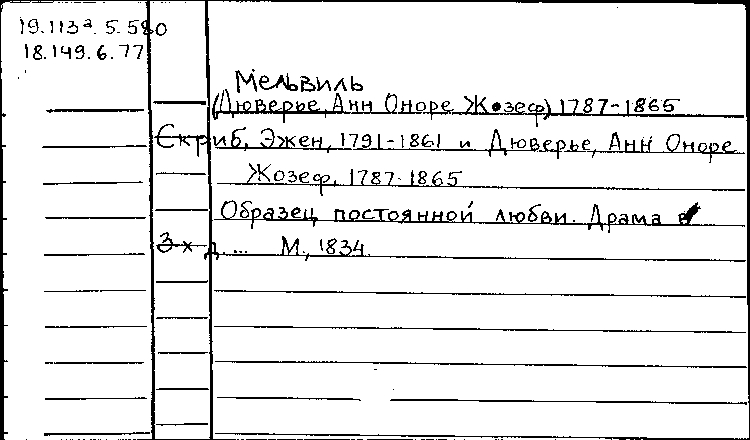 19.113ª.5.580
18.149.6.77
Мельвиль
(Дюверье, Анн Оноре Жозеф) 1787-1865
Скриб, Эжен, 1791-1861 и Дюверье, Анн Оноре
Жозеф, 1787-1865
Образец постоянной любви. Драма в
3-х д. ... М., 1834.